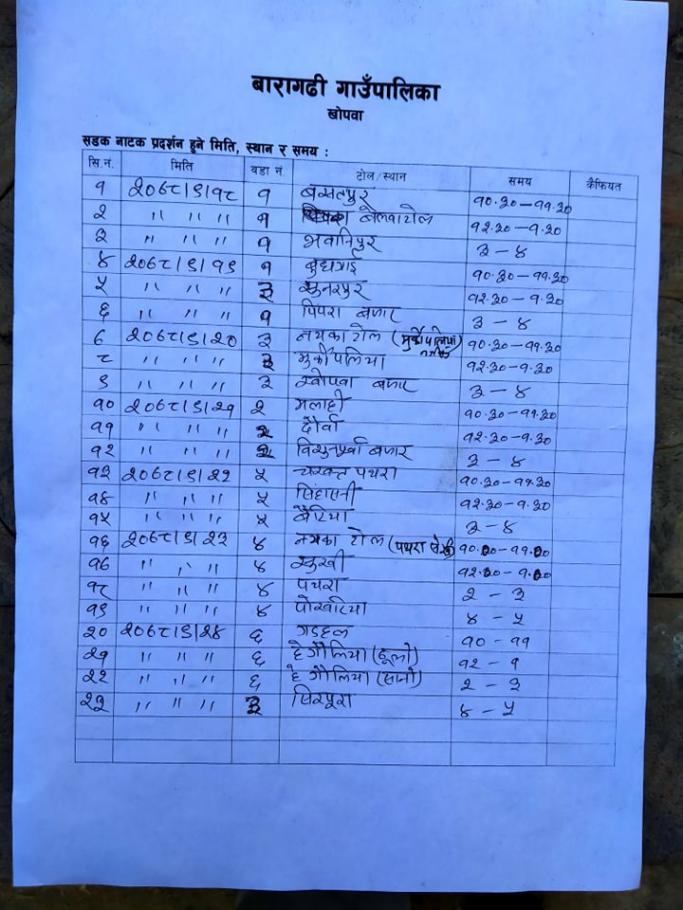 बारागढी गाउँपालिका
खोपवा
सडक नाटक प्रदर्शन हुने मिति, स्थान र समय :
सि.नं. मिति वडा नं टोल/स्थान समय कैफियत
१ २०७८।९।१८ १ बसतपुर १०.३०-११.३०
२ " " " १ बेलवाटोल १२.३०-१.३०
३ " " " १ भवानिपुर ३-४
४ २०७८।९।१९ १ बुधगाई १०.३०-११.३०
५ " " " ३ सुनरपुर १२.३०-१.३०
६ " " " १ पिपरा बजार ३-४
७ २०७८।९।२० ३ नयका टोल (मुर्कीपलिया नजिक) १०.३०-११.३०
८ " " " ३ मुर्कीपलिया १२.३०-१.३०
९ " " " ३ खोपवा बजार ३-४
१० २०७८।९।२१ २ मलाही १०.३०-११.३०
११ " " " २ दोर्वा १२.३०-१.३०
१२ " " " २ विसुनपुर्वा बजार ३-४
१३ २०७८।९।२२ ५ पथरा १०.३०-११.३०
१४ " " " ५ सिंहासनी १२.३०-१.३०
१५ " " " ५ बैरिया ३-४
१६ २०७८।९।२३ ४ नयका टोल (पथरा १०.००-११.००
१७ " " " ४ सुखी १२.००-१.००
१८ " " " ४ पथरा २-३
१९ " " " ४ पोखरिया ४-५
२० २०७८।९।२४ ६ गडहल १०-११
२१ " " " ६ हेगौलिया (ठूलो) १२-१
२२ " " " ६ हेगौलिया (सानो) २-३
२३ " " " ३ सिरपुरा ४-५